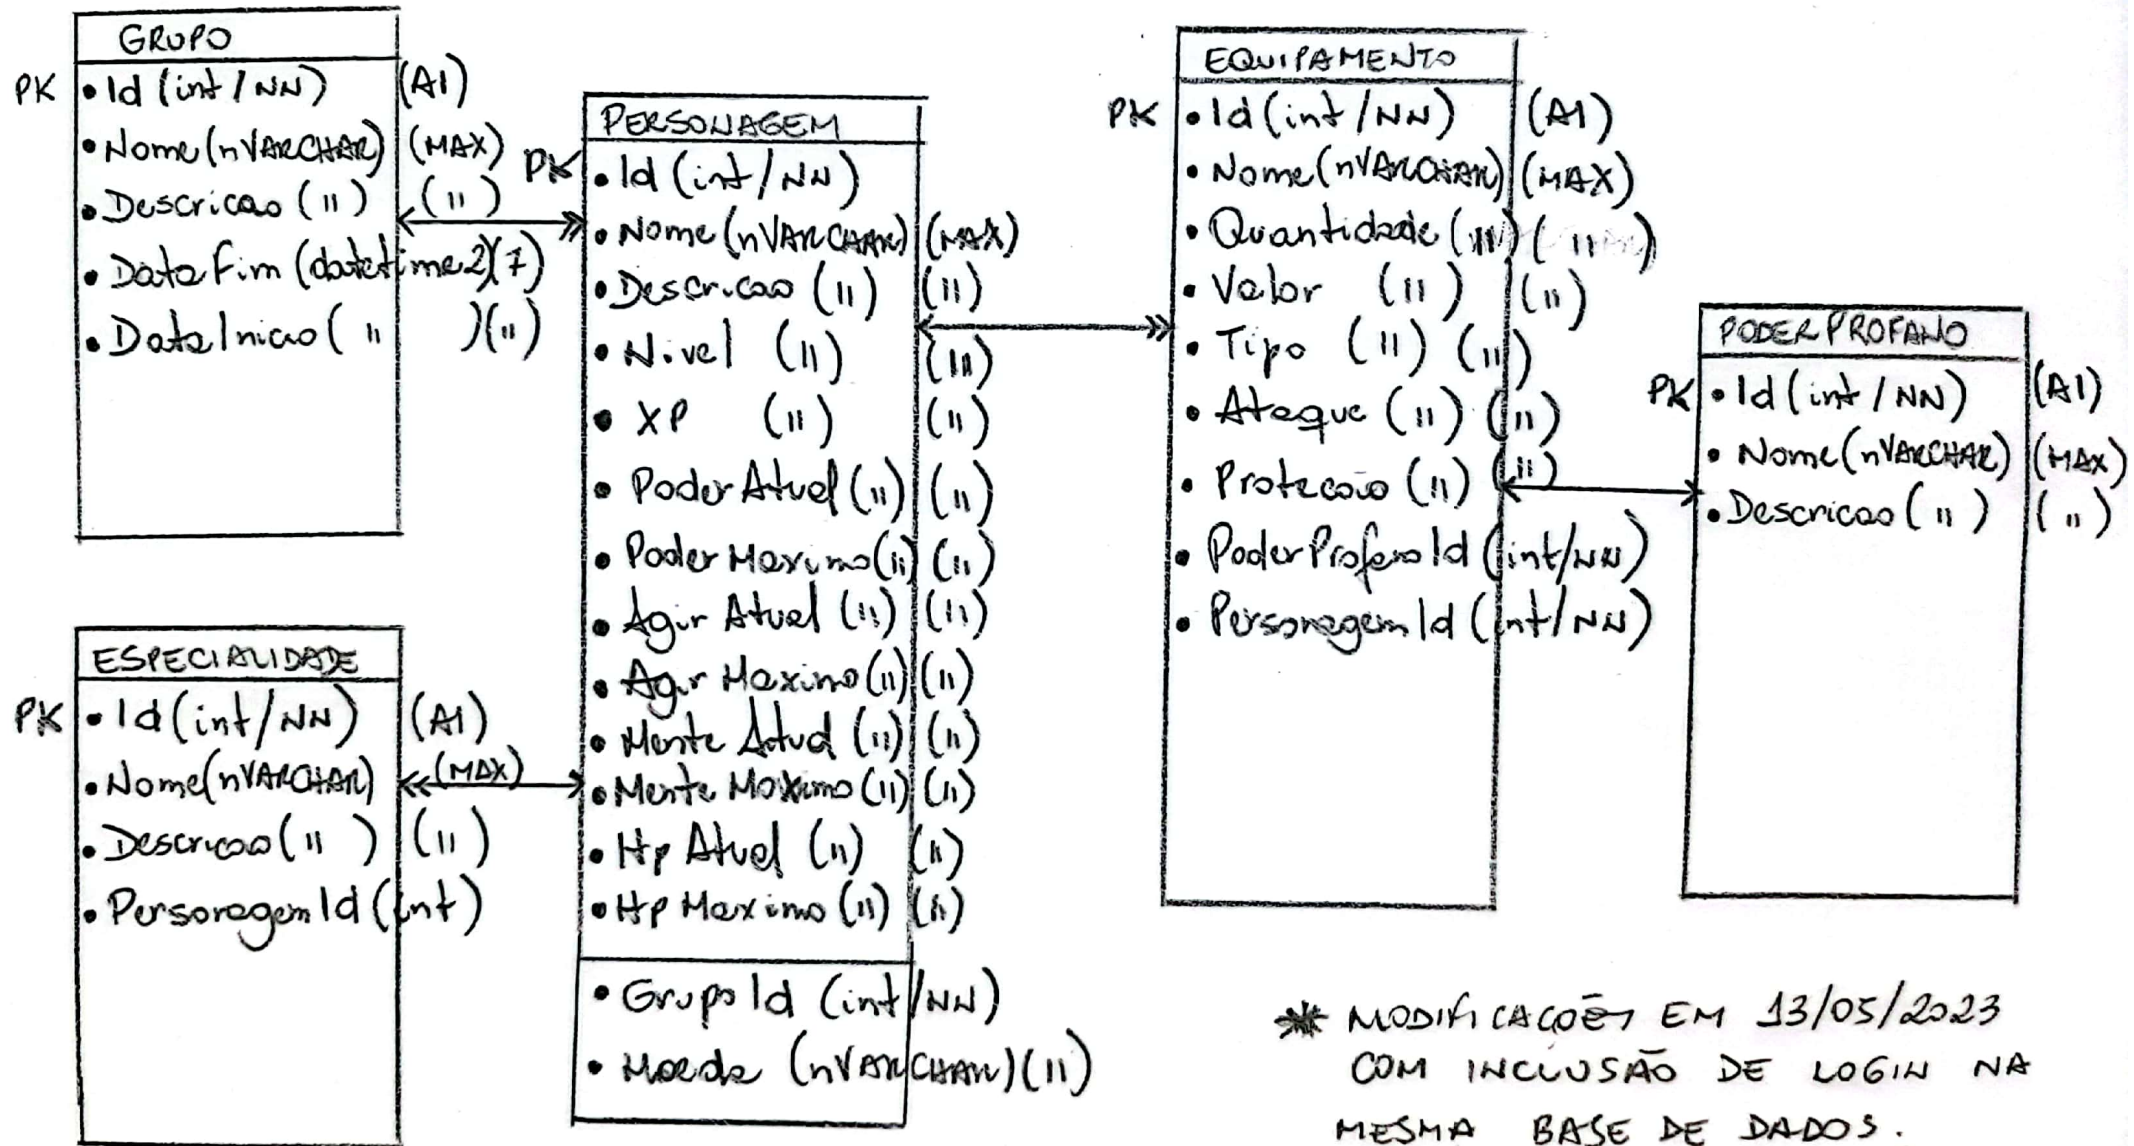 GRUPO
PK • Id (int/NN) (AI)
• Nome (nVARCHAR) (MAX)
• Descricao (") (")
• DataFim (datetime2)(7)
• DataInicio (" )(")
ESPECIALIDADE
PK • Id (int/NN) (AI)
• Nome (nVARCHAR) (MAX)
• Descricao (") (")
• PersonagemId (int)
PERSONAGEM
PK • Id (int/NN)
• Nome (nVARCHAR) (MAX)
• Descricao (") (")
• Nivel (") (")
• XP (") (")
• Poder Atual (") (")
• Poder Maximo (") (")
• Agir Atual (") (")
• Agir Maximo (") (")
• Mente Atual (") (")
• Mente Maximo (") (")
• Hp Atual (") (")
• Hp Maximo (") (")
• GrupoId (int/NN)
• Moeda (nVARCHAR)(")
EQUIPAMENTO
PK • Id (int/NN) (AI)
• Nome (nVARCHAR) (MAX)
• Quantidade (") (")
• Valor (") (")
• Tipo (") (")
• Ataque (") (")
• Protecao (") (")
• PoderProfanoId (int/NN)
• PersonagemId (int/NN)
PODERPROFANO
PK • Id (int/NN) (AI)
• Nome (nVARCHAR) (MAX)
• Descricao (") (")
* MODIFICAÇÕES EM 13/05/2023
COM INCLUSÃO DE LOGIN NA
MESMA BASE DE DADOS.